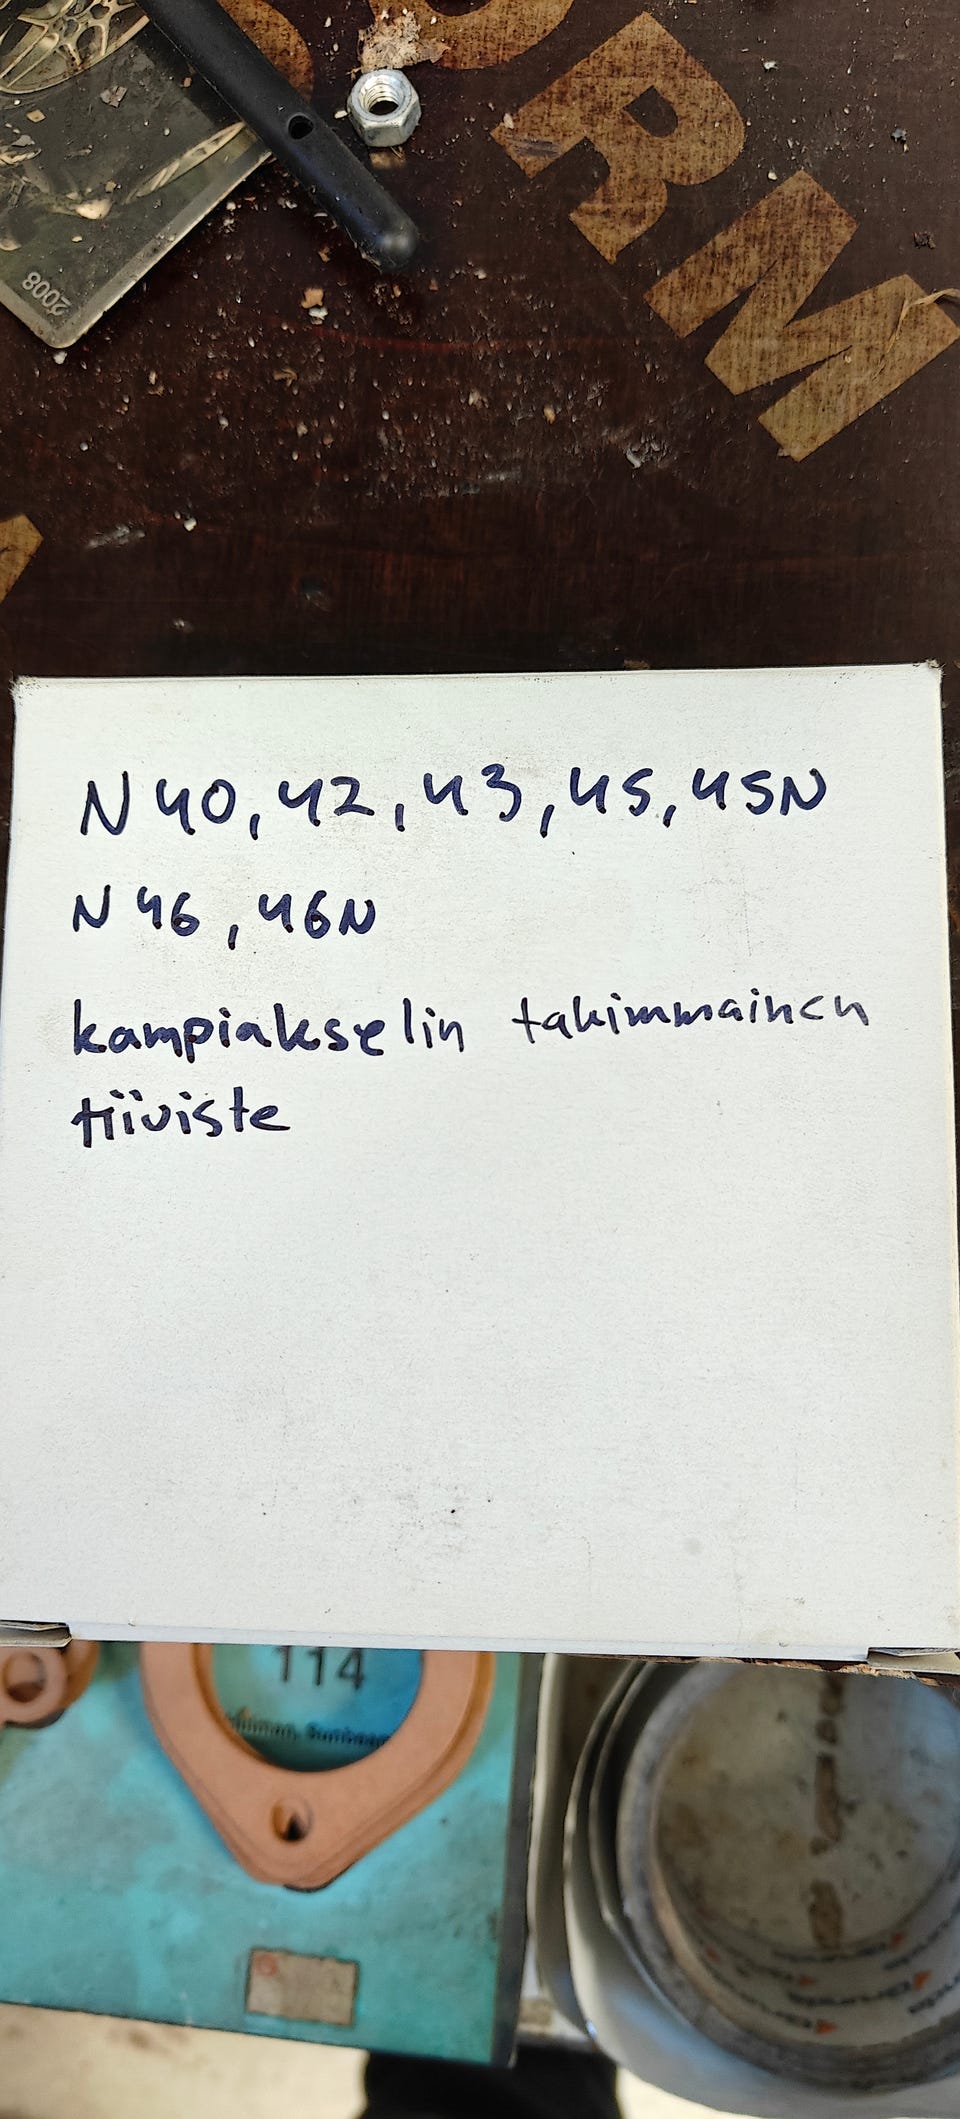 2008
ORM
N 40, 42, 43, 45, 45N
N 46, 46N
kampiakselin takimmainen
tiiviste
114
Hillman, Sunbeam